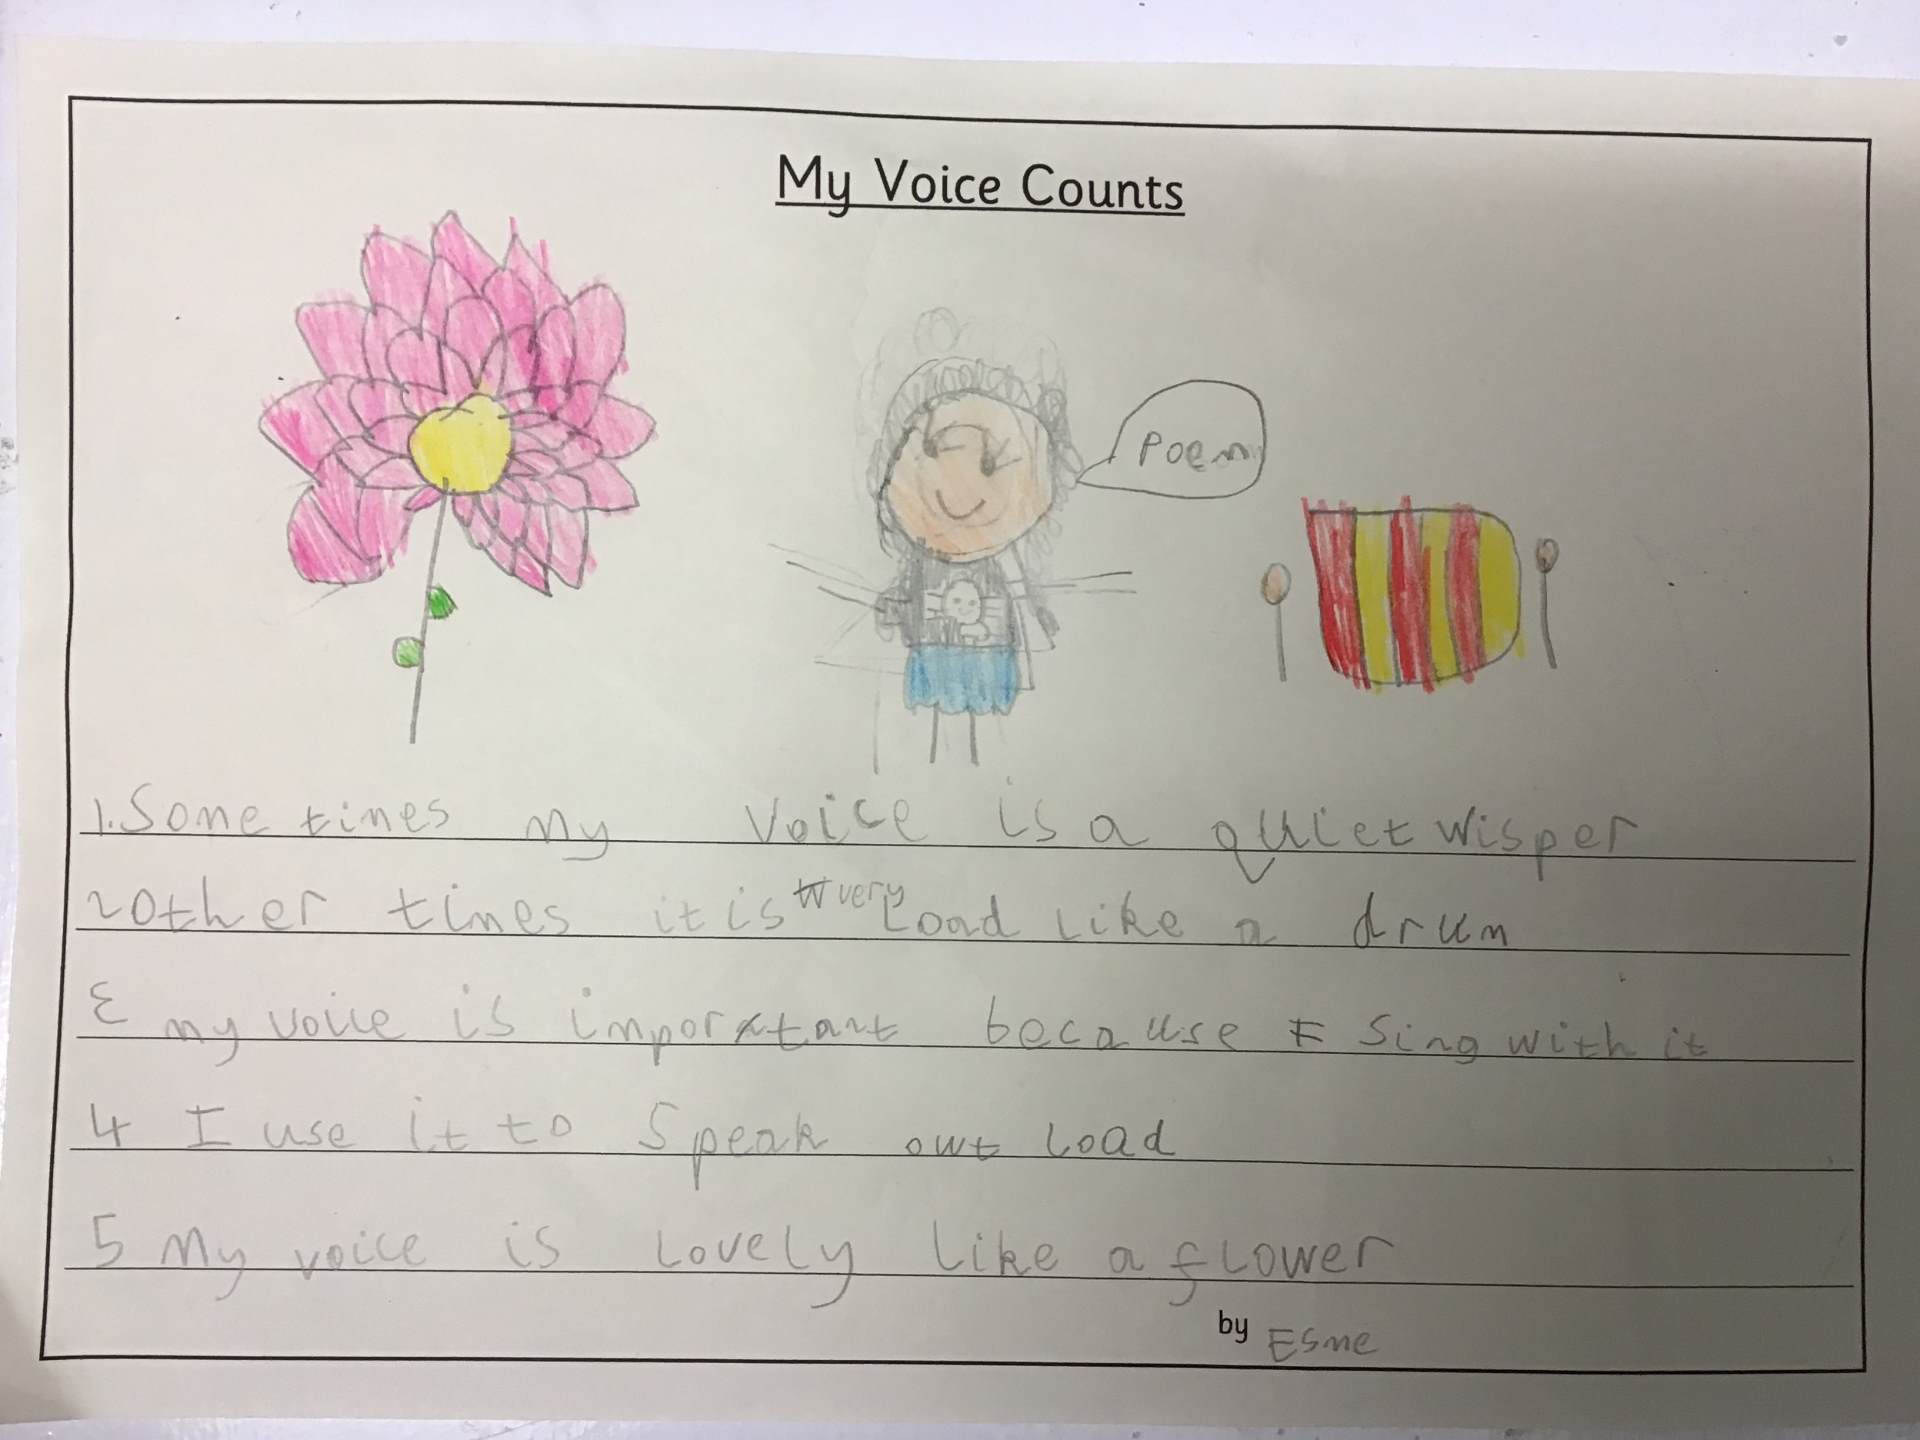 My Voice Counts
Poem
1. Some times my voice is a quiet wisper
2 Other times it is very Load like a drum
3 my voice is important because I sing with it
4 I use it to Speak out load
5 My voice is lovely like a flower
by Esme